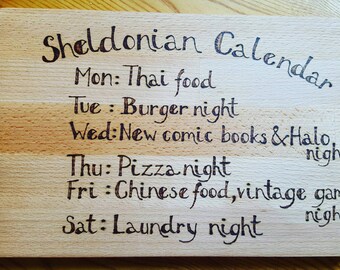 Sheldonian Calendar
Mon: Thai food
Tue : Burger night
Wed: New comic books & Halo
night
Thu: Pizza night
Fri : Chinese food, vintage
night
Sat: Laundry night